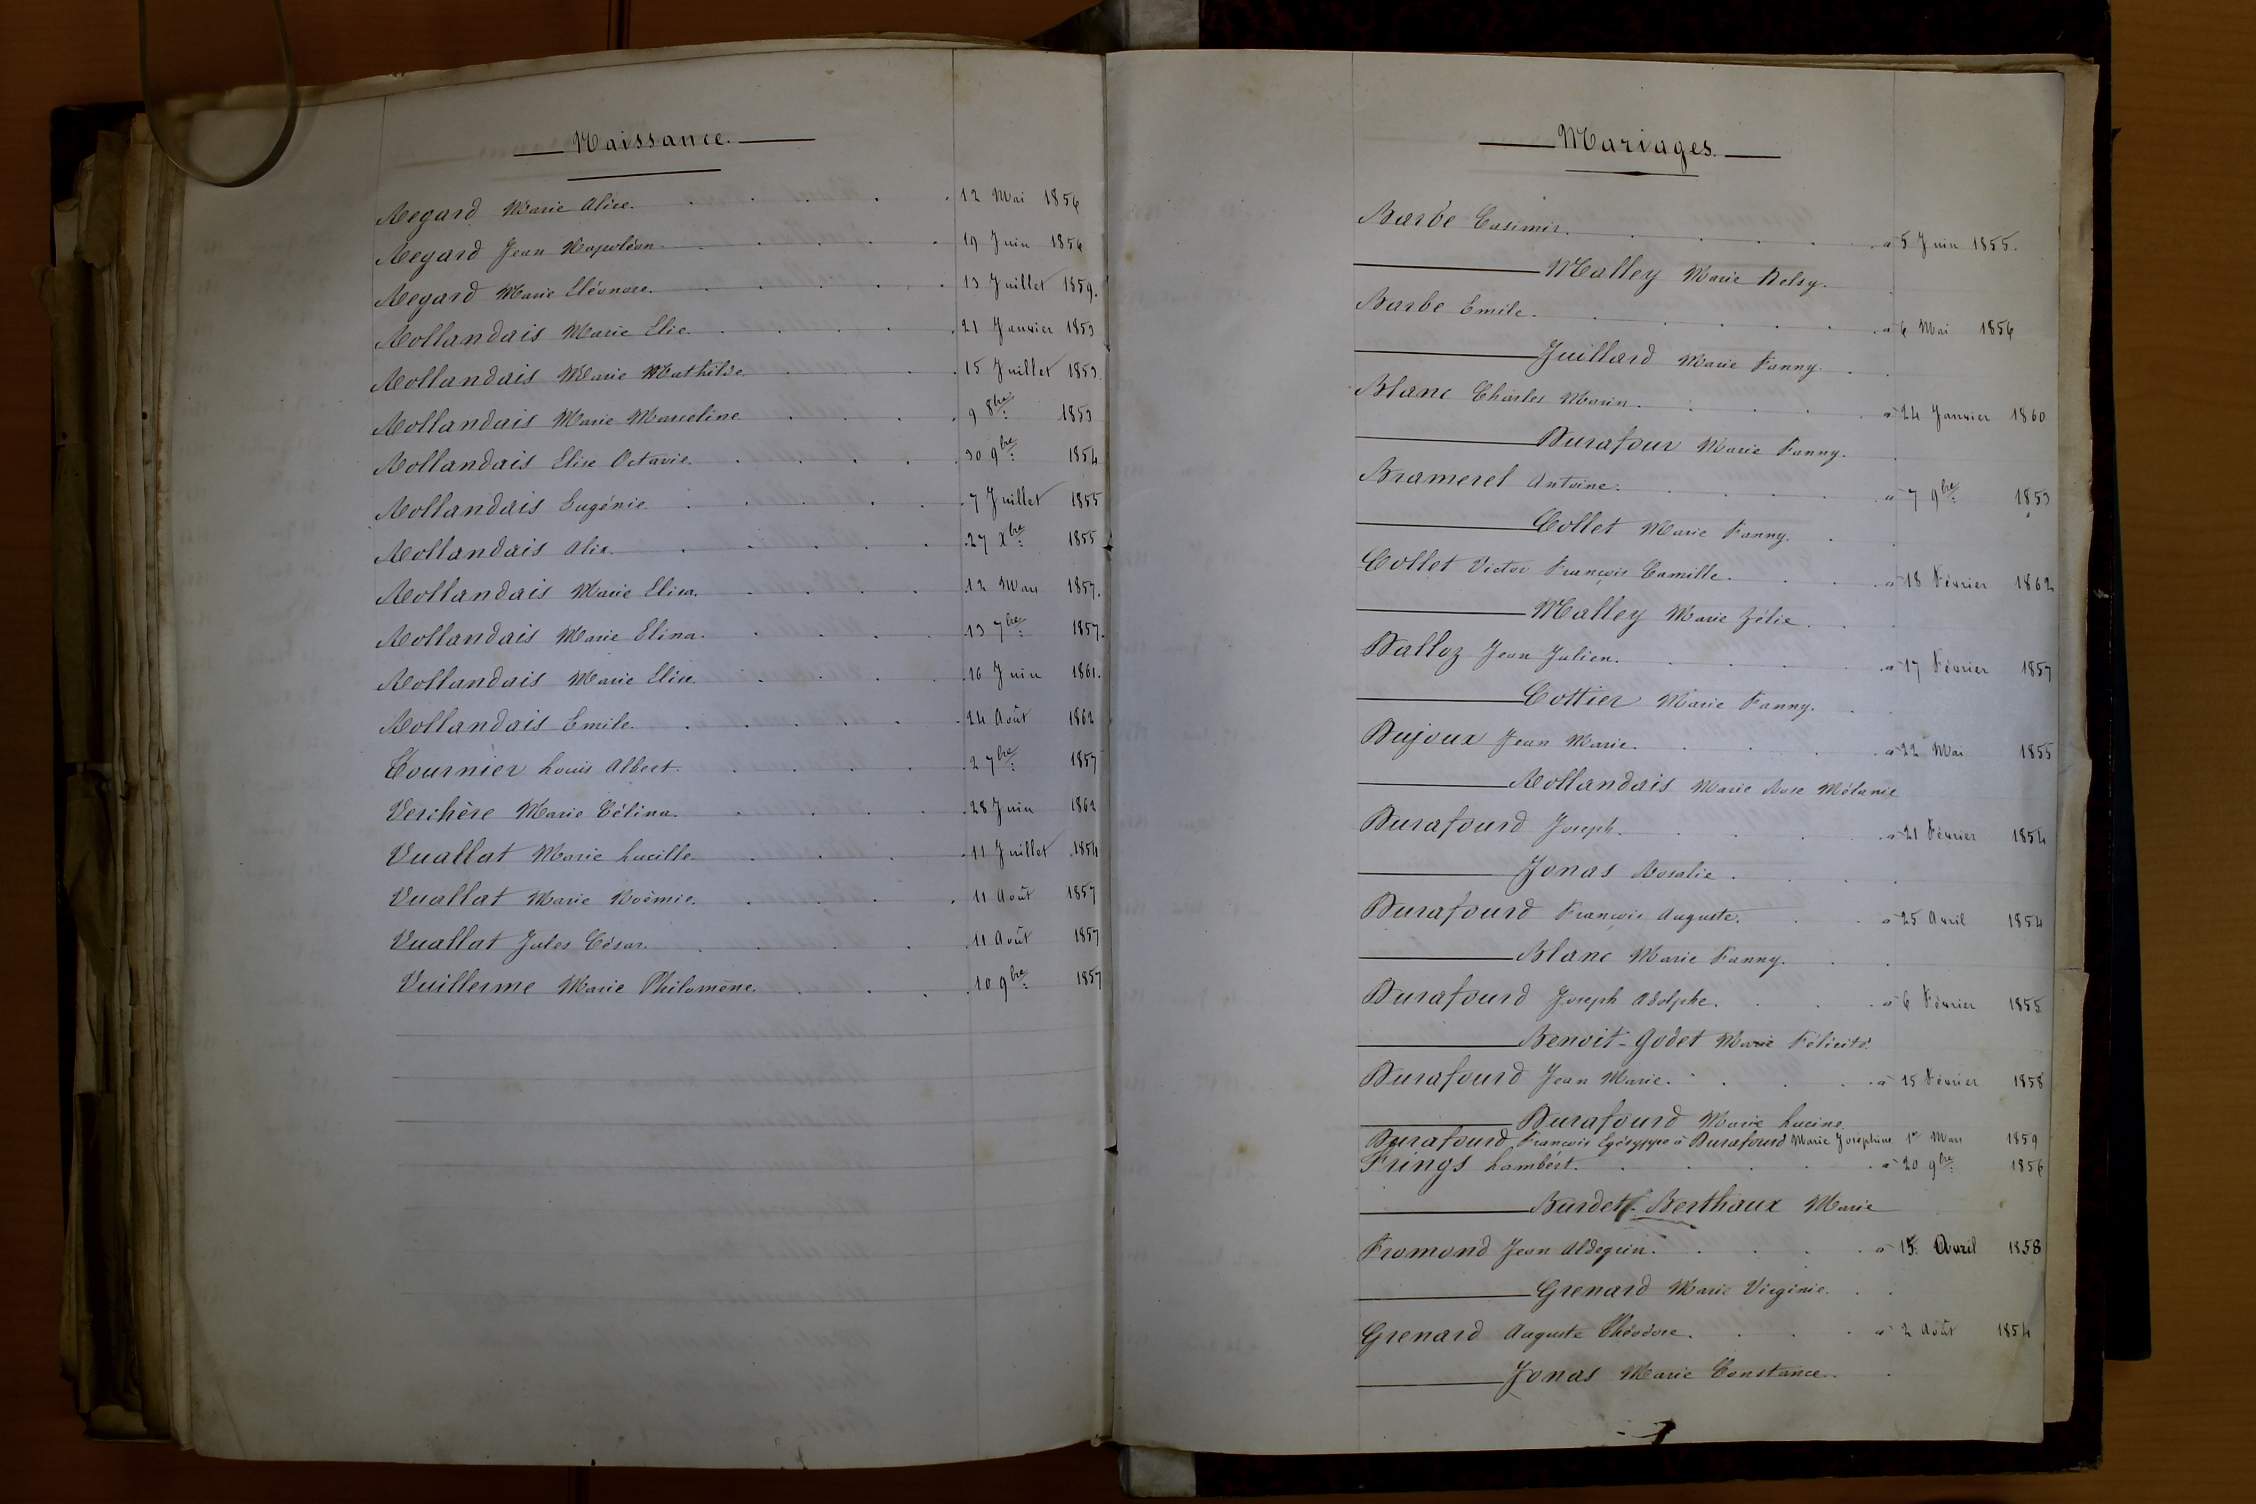 Naissance.
Regard Marie Alice. 12 Mai 1856
Regard Jean Napoléon 19 Juin 1856
Regard Marie Eléonore. 13 Juillet 1859.
Rollandais Marie Elie 21 Janvier 1853
Rollandais Marie Mathilde 15 Juillet 1853
Rollandais Marie Marceline 9 8bre 1853
Rollandais Elise Octavie 30 9bre 1854
Rollandais Eugénie 7 Juillet 1855
Rollandais Alix 27 Xbre 1855
Rollandais Marie Elisa. 12 Mars 1857.
Rollandais Marie Elina. 13 7bre 1857.
Rollandais Marie Elise 16 Juin 1861.
Rollandais Emile 24 Août 1862
Tournier Louis Albert. 2 7bre 1857
Verchère Marie Célina. 28 Juin 1862
Vuallat Marie Lucille 11 Juillet 1854
Vuallat Marie Noémie. 11 Août 1857
Vuallat Jules César. 11 Août 1857
Vuillerme Marie Philomène. 10 9bre 1857
Mariages.
Barbe Casimir. à 5 Juin 1855.
Malley Marie Betsy.
Barbe Emile. à 6 Mai 1856
Juillard Marie Fanny.
Blanc Charles Marin. à 24 Janvier 1860
Durafour Marie Fanny.
Bramerel Antoine. à 7 9bre 1853
Collet Marie Fanny.
Collet Victor François Camille. à 18 Février 1862
Malley Marie Zélie.
Dalloz Jean Julien. à 17 Février 1857
Cottier Marie Fanny.
Dujoux Jean Marie. à 22 Mai 1855
Rollandais Marie Rose Mélanie
Durafourd Joseph. à 21 Février 1854
Jonas Rosalie.
Durafourd François Auguste. à 25 Avril 1854
Blanc Marie Fanny.
Durafourd Joseph Adolphe. à 6 Février 1855
Benoit-Godet Marie Félicité.
Durafourd Jean Marie. à 15 Février 1858
Durafourd Marie Lucine
Durafourd François Egésyppe à Durafourd Marie Joséphine 1er Mars 1859
Frings Lambert. à 20 9bre 1856
Burdet-Berthaux Marie
Fromond Jean Aldegrin. à 15 Avril 1858
Grenard Marie Virginie.
Grenard Auguste Théodore. à 2 Août 1854
Jonas Marie Constance.